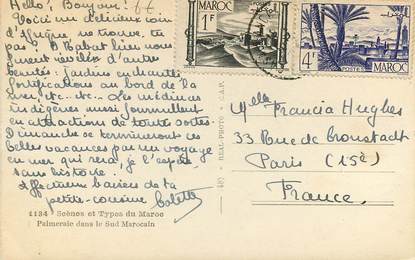 Hello, Bonjour!
Voici un délicieux coin
d'Afrique, ne trouves tu
pas. A Rabat bien nous
sont révélées d'autres
beautés: jardins enchantés
fortifications au bord de la
mer, etc.. etc.. Les médinas
indigènes aussi fourmillent
en attractions de toutes sortes.
Dimanche se termineront ces
belles vacances par un voyage
en mer qui sera, je l'espère
sans histoire.
Affectueux baisers de ta
petite-cousine Colette
1134 Scènes et Types du Maroc
Palmeraie dans le Sud Marocain
REAL-PHOTO
C.A.P.
1F
MAROC
4F
POSTES
MAROC
Melle Francia Hughes
33 Rue de Cronstadt
Paris (15è)
France.